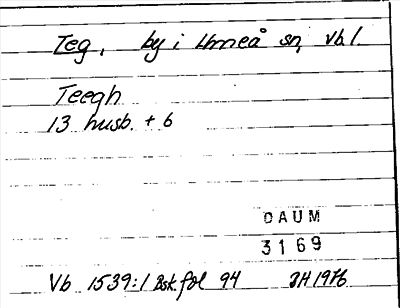 Teg, by i Umeå sn, Vb.l.
Teegh
13 husb. + 6
DAUM
3169
Vb 1539:1 Bsk. fol 94 JH 1976